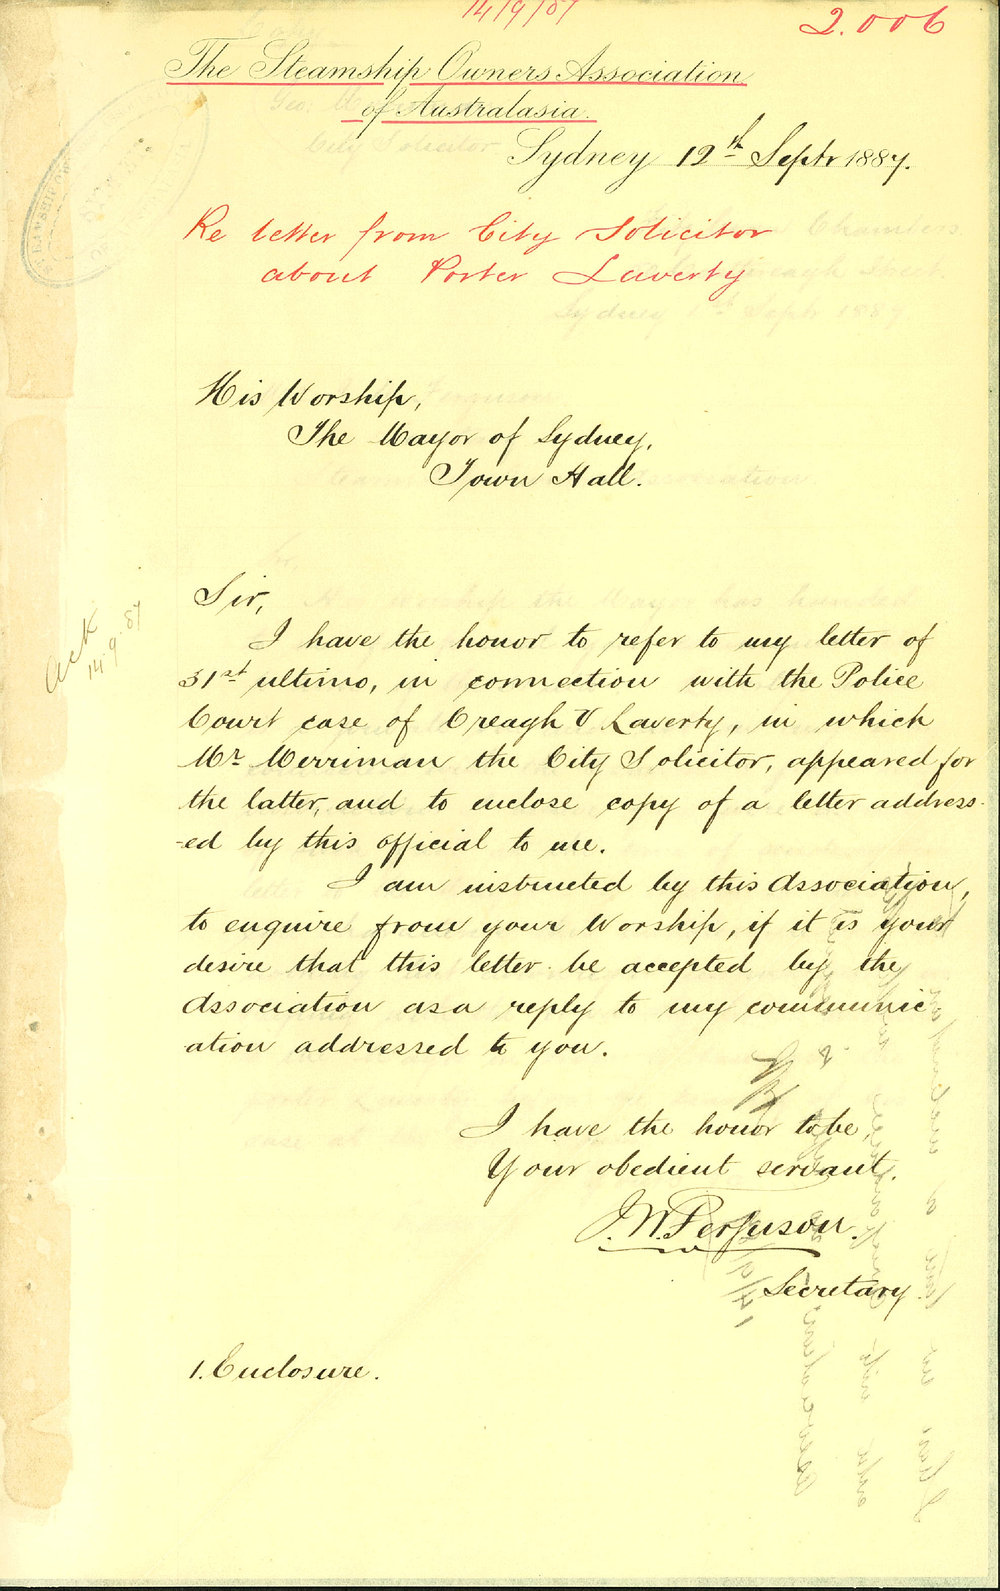 14/9/87
2.006
The Steamship Owners Association
of Australasia.
Sydney 12th Septr 1887.
Re letter from City Solicitor
about Porter Laverty
His Worship,
The Mayor of Sydney,
Town Hall.
Sir,
Ack
14.9.87
I have the honor to refer to my letter of
31st ultimo, in connection with the Police
Court case of Creagh V Laverty, in which
Mr Merriman the City Solicitor, appeared for
the latter, and to enclose copy of a letter address-
-ed by this official to me.
I am instructed by this Association,
to enquire from your Worship, if it is your
desire that this letter be accepted by the
Association as a reply to my communic-
ation addressed to you.
I have the honor to be,
Your obedient servant.
J.W. Ferguson.
Secretary.
1. Enclosure.